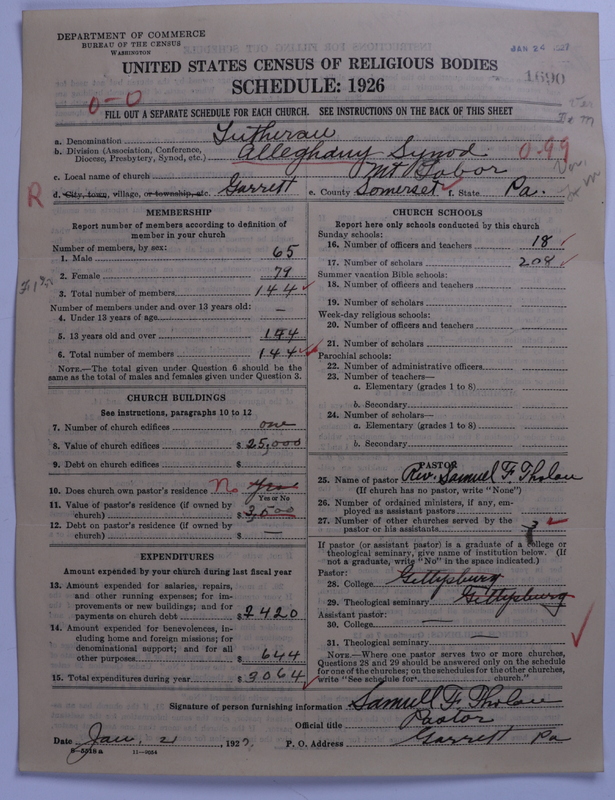 DEPARTMENT OF COMMERCE
BUREAU OF THE CENSUS
WASHINGTON
JAN 24 1927
UNITED STATES CENSUS OF RELIGIOUS BODIES
SCHEDULE: 1926
1690
0-0
FILL OUT A SEPARATE SCHEDULE FOR EACH CHURCH. SEE INSTRUCTIONS ON THE BACK OF THIS SHEET
a. Denomination Lutheran
b. Division (Association, Conference, Diocese, Presbytery, Synod, etc.) Alleghany Synod 0-99
c. Local name of church Mt. Tabor
R d. City, town, village, or township, etc. Garrett e. County Somerset f. State Pa.
MEMBERSHIP
Report number of members according to definition of
member in your church
Number of members, by sex:
1. Male 65
2. Female 79
3. Total number of members 144
Number of members under and over 13 years old:
4. Under 13 years of age —
5. 13 years old and over 144
6. Total number of members 144
NOTE.—The total given under Question 6 should be the
same as the total of males and females given under Question 3.
CHURCH BUILDINGS
See instructions, paragraphs 10 to 12
7. Number of church edifices one
8. Value of church edifices $ 25,000
9. Debt on church edifices $
10. Does church own pastor's residence No
Yes or No
11. Value of pastor's residence (if owned by
church) $ 3,500
12. Debt on pastor's residence (if owned by
church) $ —
EXPENDITURES
Amount expended by your church during last fiscal year
13. Amount expended for salaries, repairs,
and other running expenses; for im-
provements or new buildings; and for
payments on church debt $ 2420
14. Amount expended for benevolences, in-
cluding home and foreign missions; for
denominational support; and for all
other purposes $ 644
15. Total expenditures during year $ 3064
CHURCH SCHOOLS
Report here only schools conducted by this church
Sunday schools:
16. Number of officers and teachers 18
17. Number of scholars 208
Summer vacation Bible schools:
18. Number of officers and teachers
19. Number of scholars
Week-day religious schools:
20. Number of officers and teachers
21. Number of scholars
Parochial schools:
22. Number of administrative officers
23. Number of teachers—
a. Elementary (grades 1 to 8)
b. Secondary
24. Number of scholars—
a. Elementary (grades 1 to 8)
b. Secondary
PASTOR
25. Name of pastor Rev. Samuel F. Tholan
(If church has no pastor, write "None")
26. Number of ordained ministers, if any, em-
ployed as assistant pastors
27. Number of other churches served by the
pastor or his assistants 3
If pastor (or assistant pastor) is a graduate of a college or
theological seminary, give name of institution below. (If
not a graduate, write "No" in the space indicated.)
Pastor:
28. College Gettysburg
29. Theological seminary Gettysburg
Assistant pastor:
30. College —
31. Theological seminary —
NOTE.—Where one pastor serves two or more churches,
Questions 28 and 29 should be answered only on the schedule
for one of the churches; on the schedules for the other churches,
write "See schedule for church."
Signature of person furnishing information Samuel F. Tholan
Official title Pastor
Date Jan. 21, 1927. P. O. Address Garrett Pa
8-5518a 11-9554